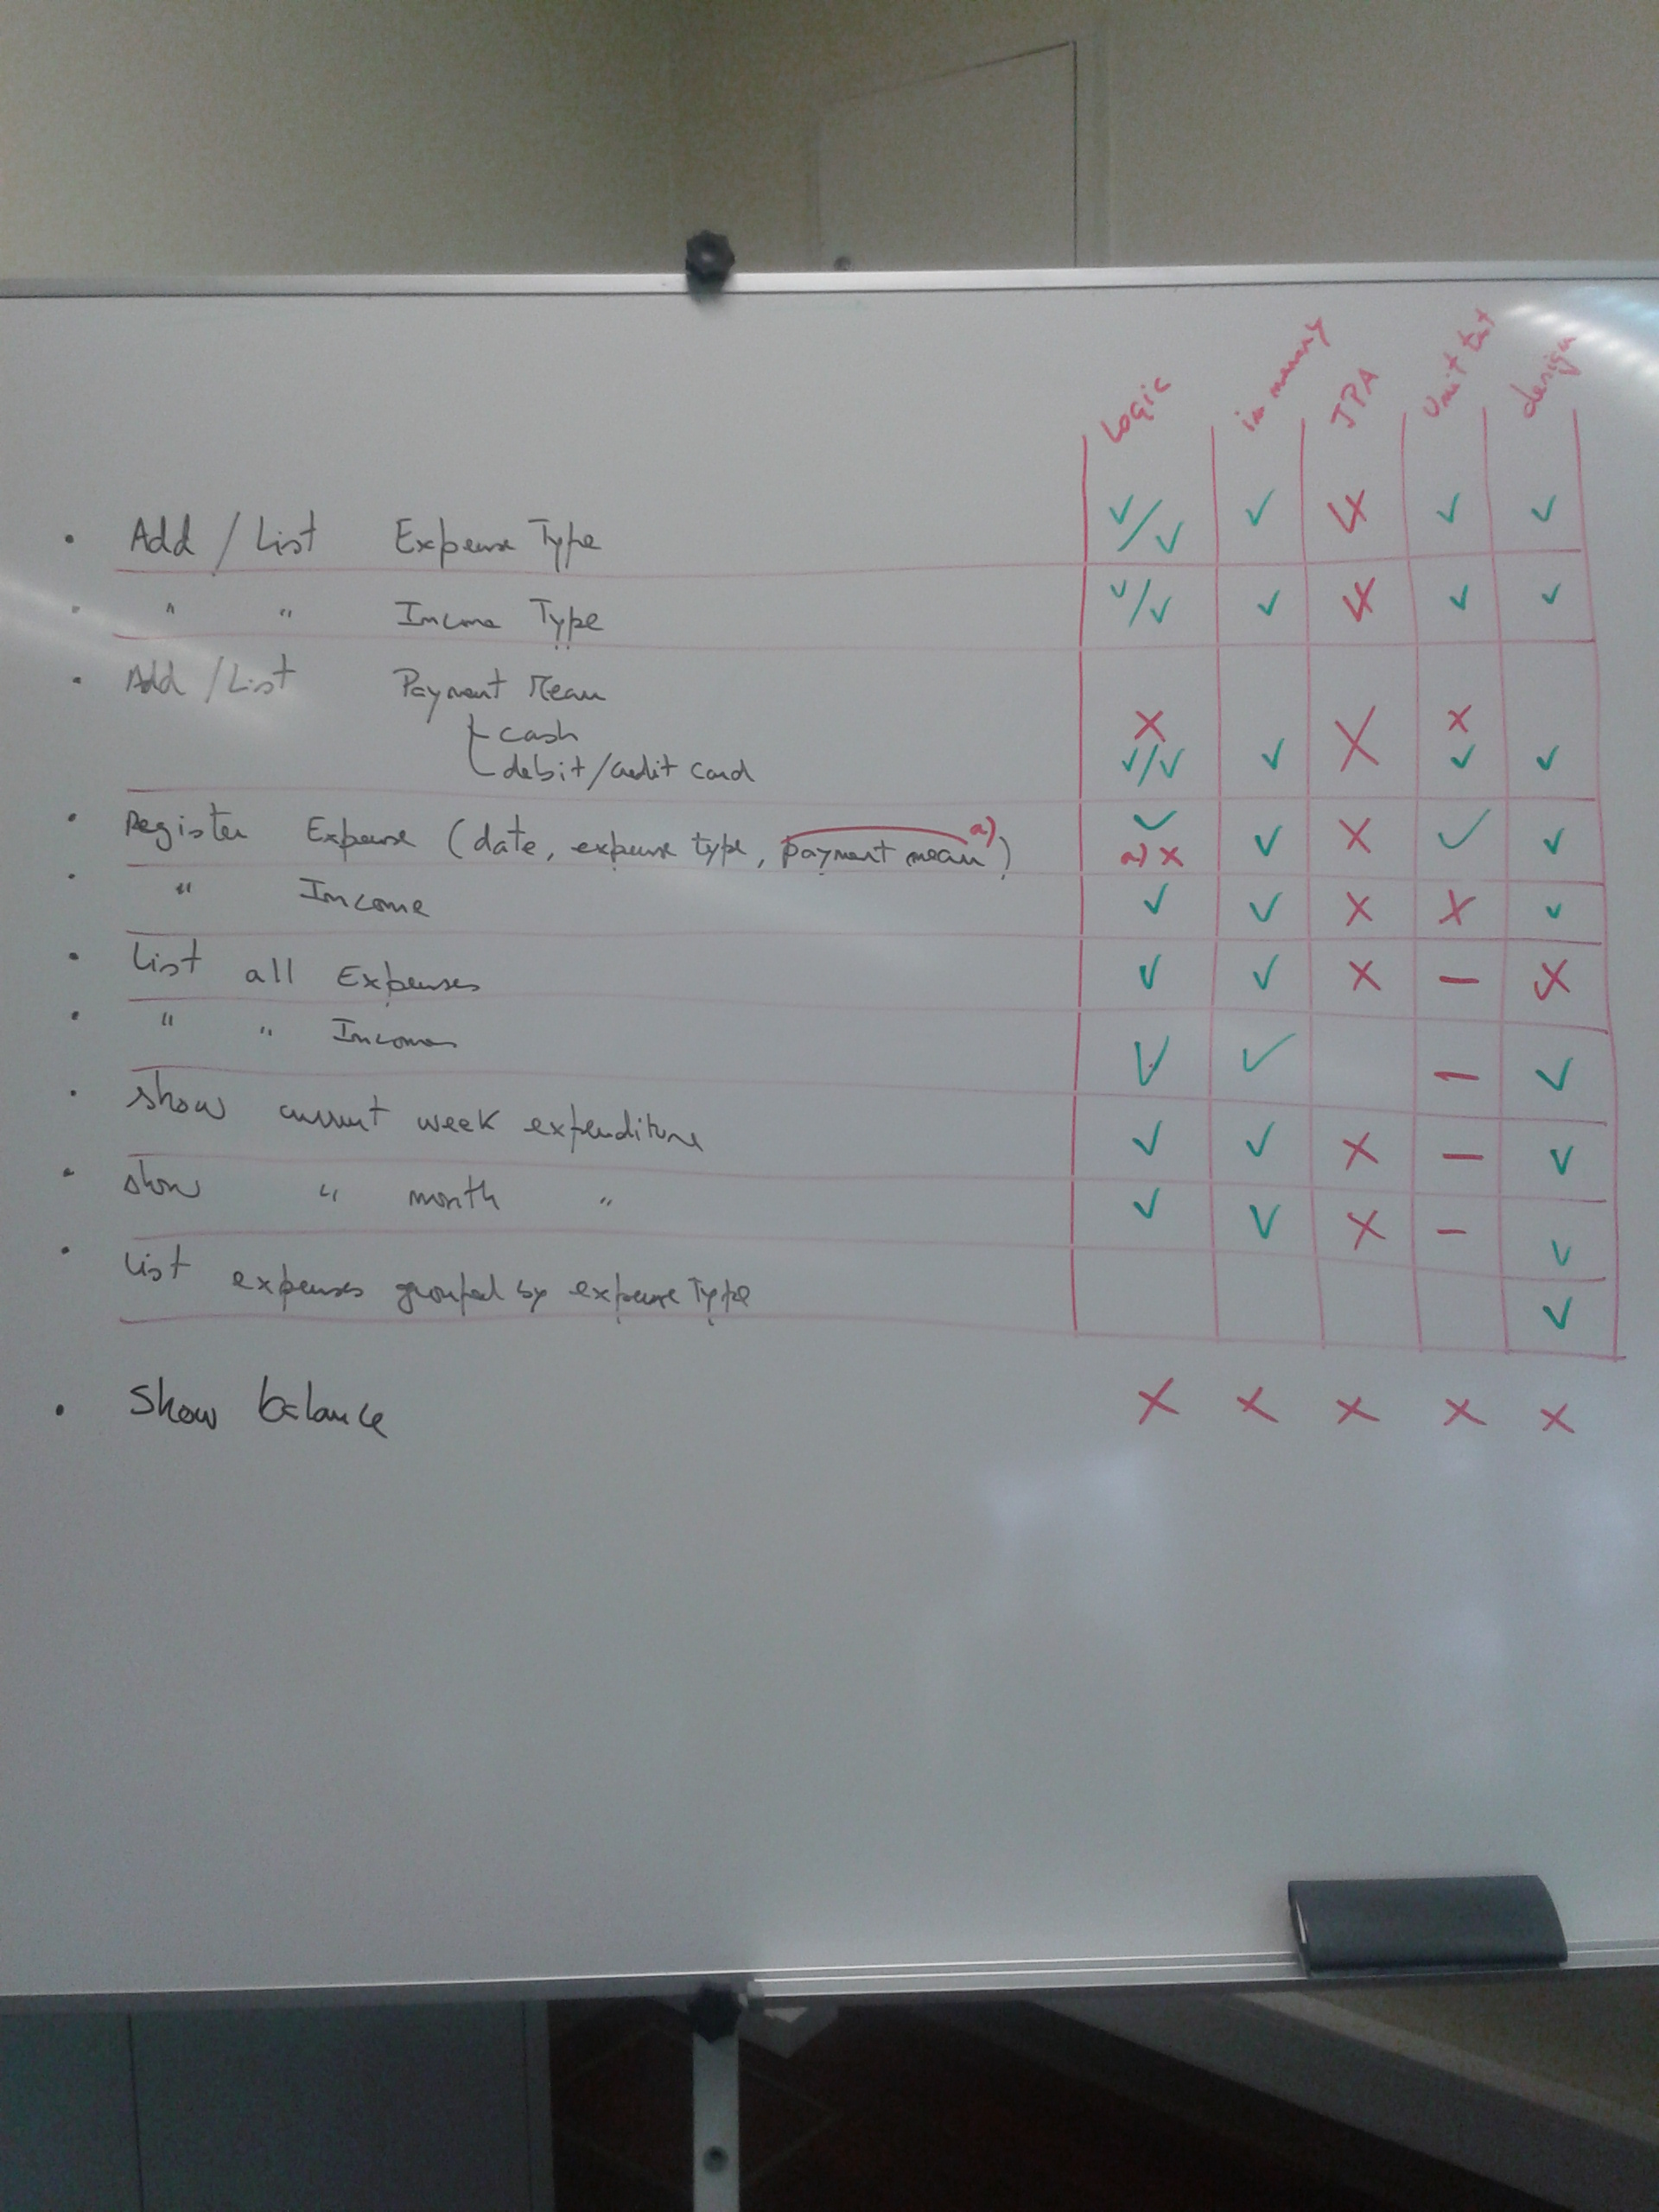 Logic in memory JPA Unit test design
• Add / List Expense Type ✓/✓ ✓ X ✓ ✓
• " " Income Type ✓/✓ ✓ X ✓ ✓
• Add / List Payment Mean
cash X X X
debit/credit card ✓/✓ ✓ ✓ ✓
• Register Expense (date, expense type, payment mean a)) ✓ a) X ✓ X ✓ ✓
• " Income ✓ ✓ X X ✓
• List all Expenses ✓ ✓ X – X
• " " Incomes ✓ ✓ – ✓
• Show current week expenditure ✓ ✓ X – ✓
• show " month " ✓ ✓ X – ✓
• List expenses grouped by expense Type ✓
• Show balance X X X X X